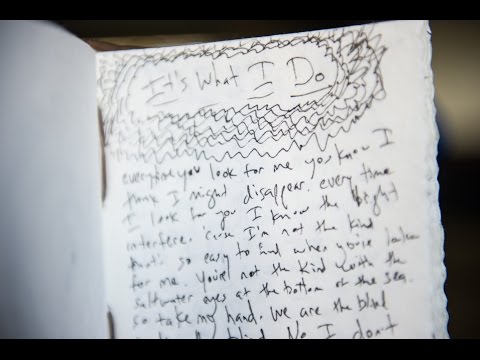 It's What I Do
everytime you look for me you know I
think I might disappear. every time
I look for you I know the light
interfere. 'cuse I'm not the kind
that's so easy to find when you've lookin
for me. You're not the kind with the
saltwater eyes at the bottom of the sea.
so take my hand. We are the blind
blind. No I don't